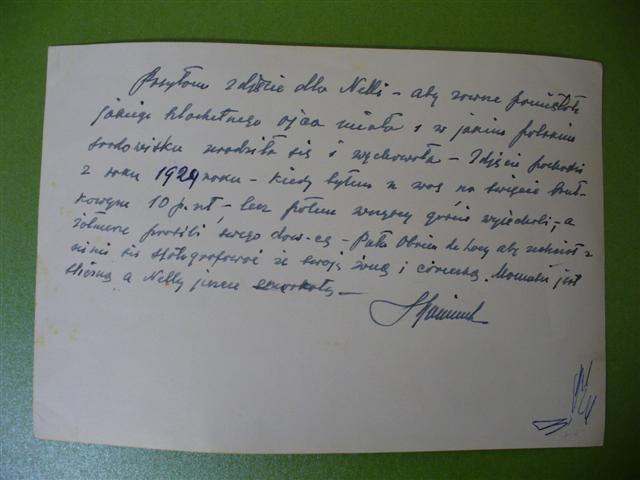 Posyłam zdjęcie dla Nelli – aby zawsze pamiętała
jakiego szlachetnego ojca miała i w jakim polskim
środowisku urodziła się i wychowała – Zdjęcie pochodzi
z roku 1929 roku – kiedy byłem z wami na święcie
10 p. – lecz potem wszyscy goście wyjechali, – a
żołnierze prosili swego d-cę – Pułk. aby zechciał z
nimi się sfotografować ze swoją żoną i córeczką. Mamusia jest
śliczna a Nelly jeszcze –